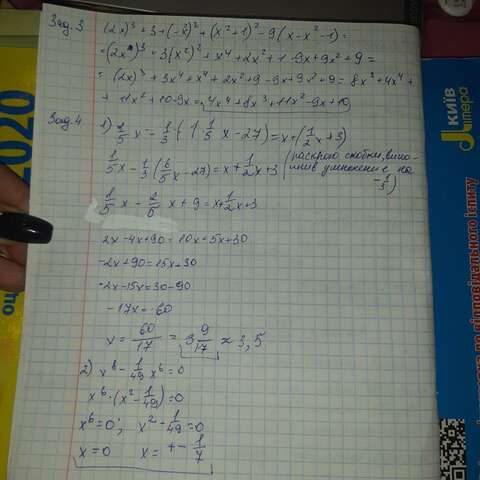 Зад. 3 (2x)³ + 3 + (-x)² + (x² + 1)² - 9(x - x² - 1) =
= (2x)³ + 3(x²)² + x⁴ + 2x² + 1 - 9x + 9x² + 9 =
= (2x)³ + 3x⁴ + x⁴ + 2x² + 9 - 9x + 9x² + 9 = 8x³ + 4x⁴ +
+ 11x² + 10 - 9x = 4x⁴ + 8x³ + 11x² - 9x + 10
Зад. 4 1) 1/5 x - 1/3 (1 1/5 x - 27) = x + (1/2 x + 3)
1/5 x - 1/3 (6/5 x - 27) = x + 1/2 x + 3 (раскрою скобки, выпо-
лнив умножение на
-1/3)
1/5 x - 2/5 x + 9 = x + 1/2 x + 3
2x - 4x + 90 = 10x + 5x + 30
-2x + 90 = 15x + 30
-2x - 15x = 30 - 90
-17x = -60
x = 60/17 = 3 9/17 ≈ 3,5
2) x⁸ - 1/49 x⁶ = 0
x⁶ · (x² - 1/49) = 0
x⁶ = 0; x² - 1/49 = 0
x = 0 x = +- 1/7
2020
оц
КИЇВ
Літера
на відповідального іспиту